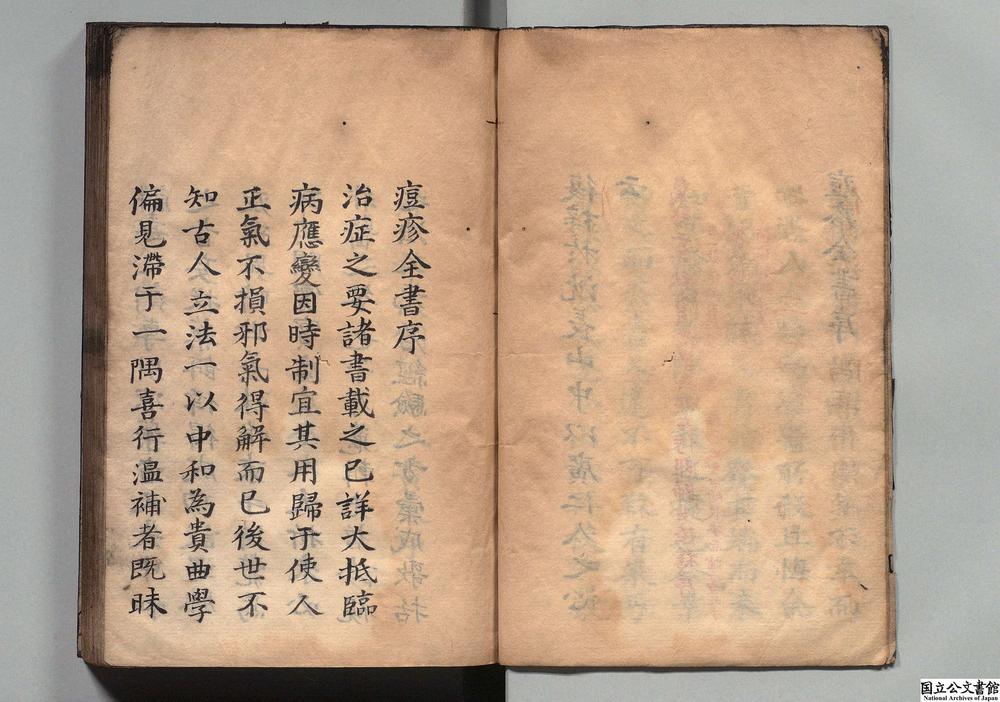 痘疹全書序
治症之要諸書載之已詳大抵臨
病應變因時制宜其用歸于使人
正氣不損邪氣得解而已後世不
知古人立法一以中和為貴曲學
偏見滯于一隅喜行溫補者既昧
国立公文書館
National Archives of Japan